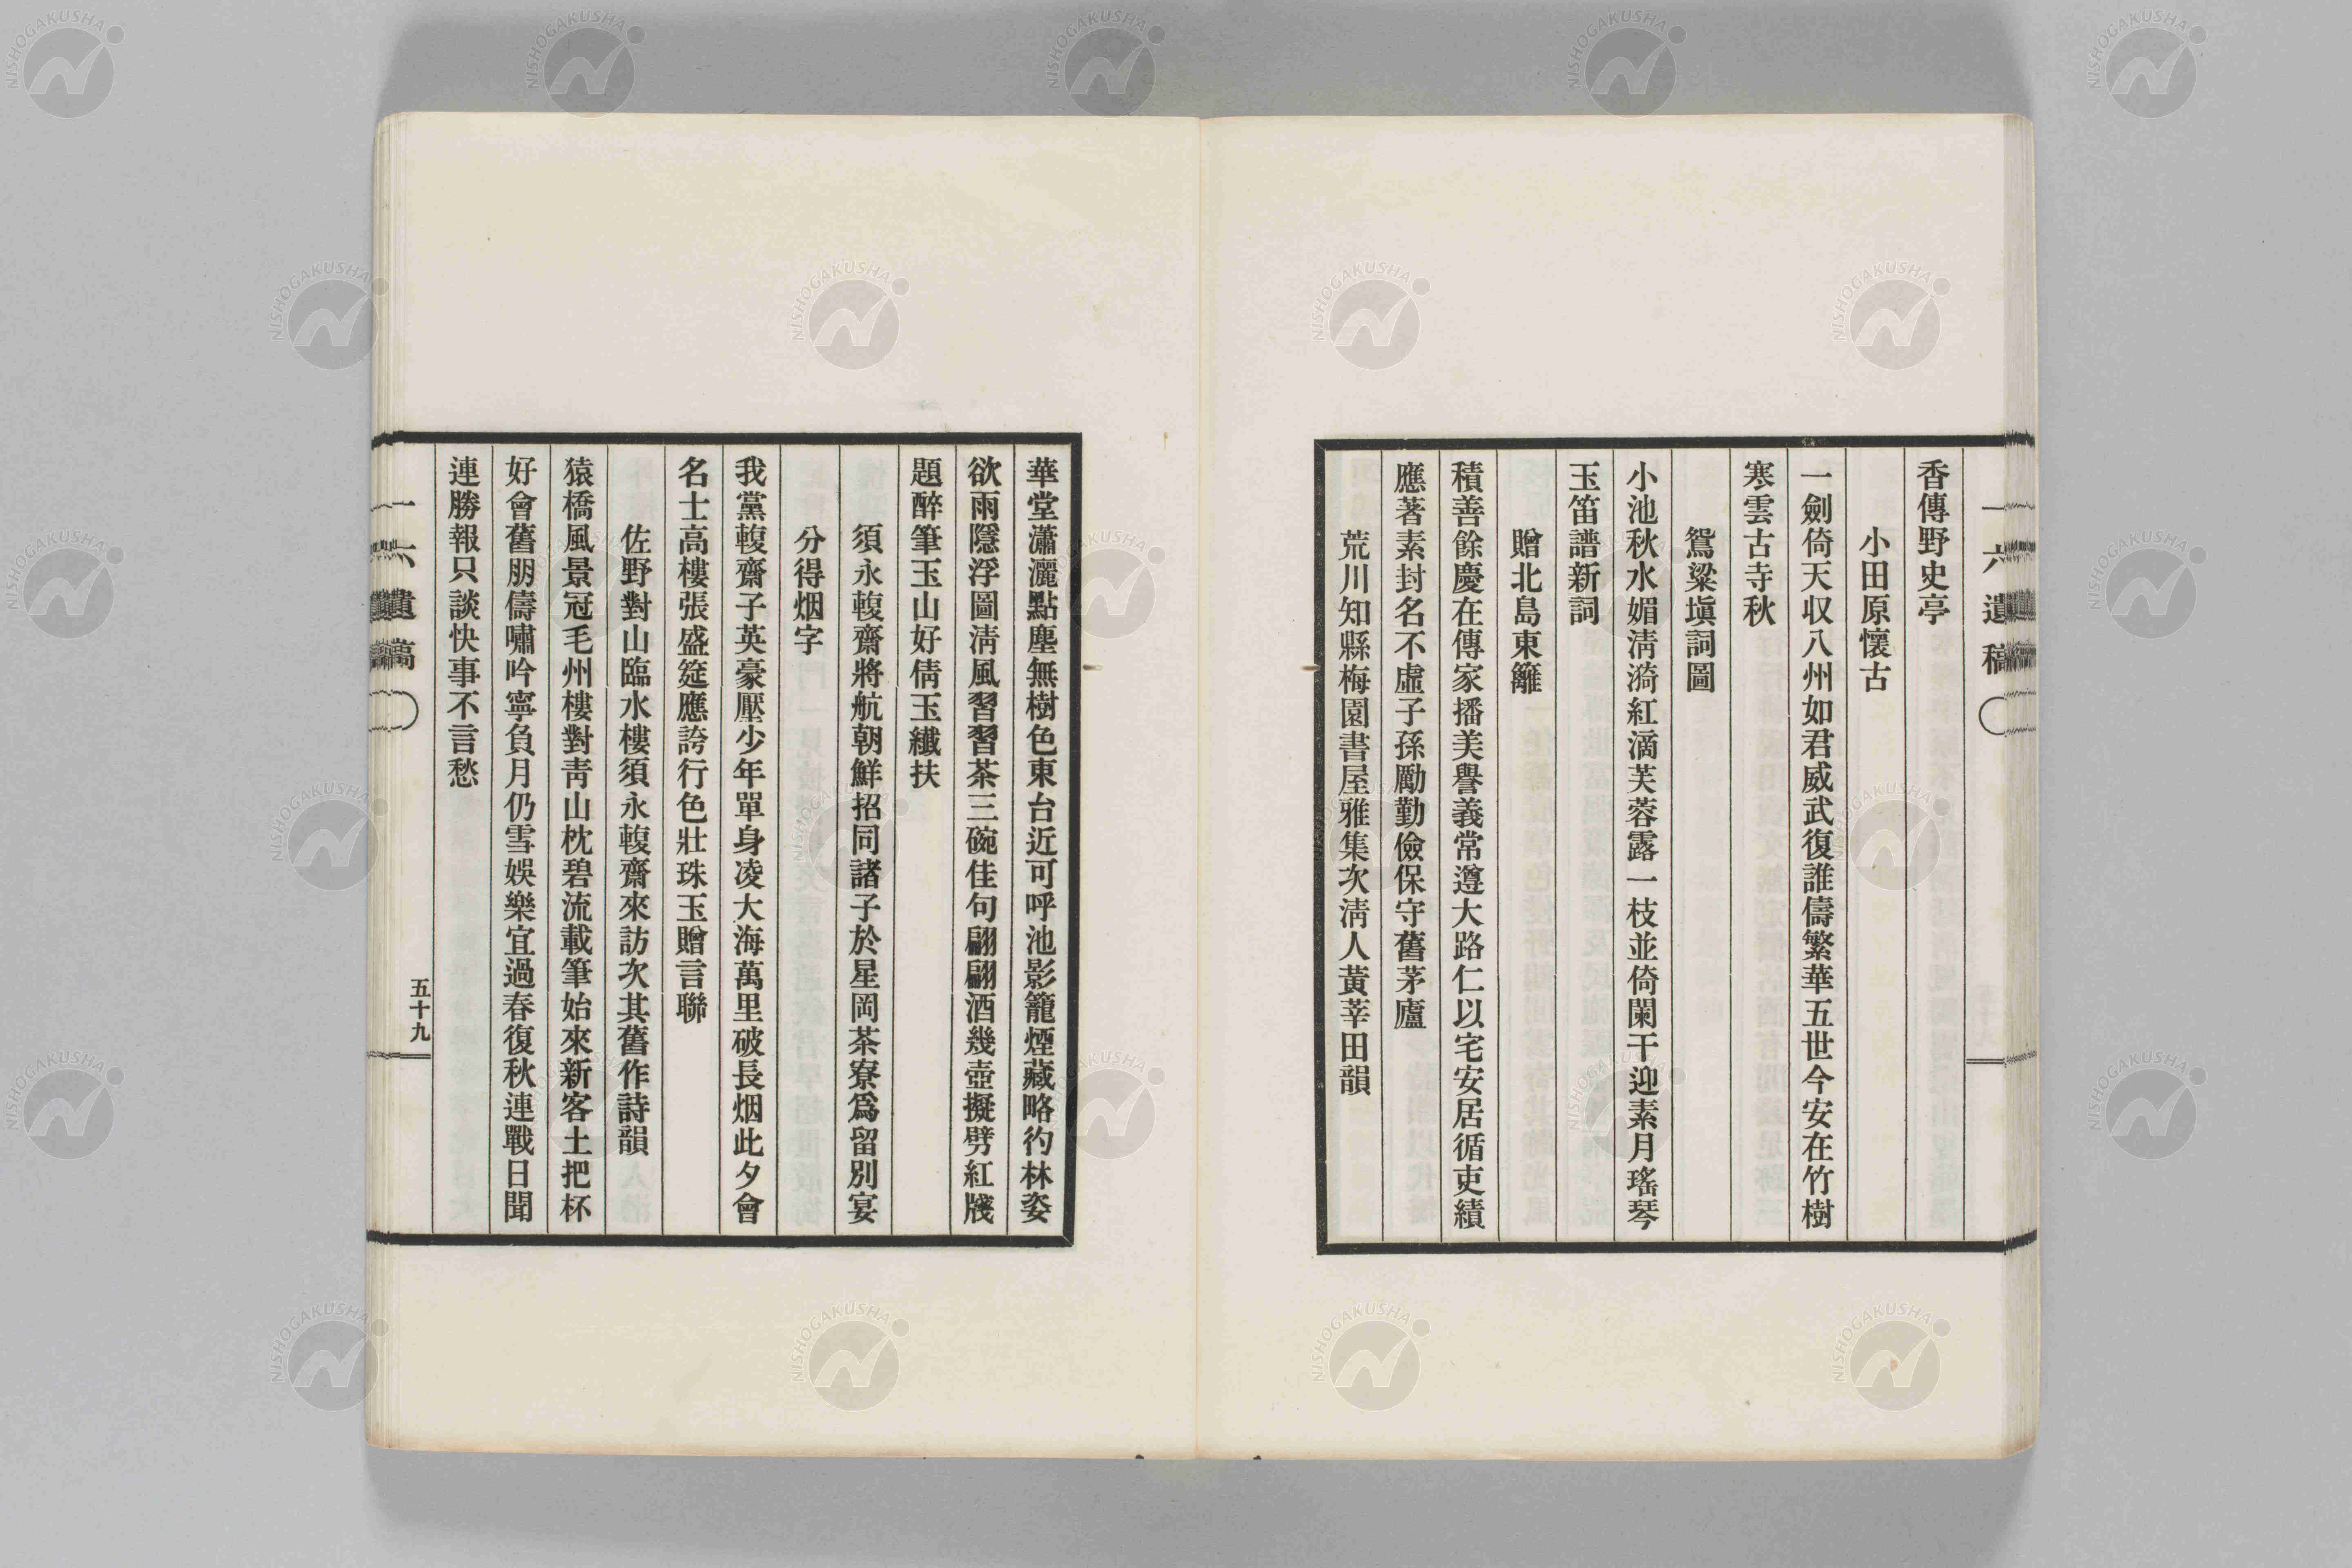 一六遺稿
香傳野史亭
小田原懷古
一劍倚天収八州如君威武復誰儔繁華五世今安在竹樹
寒雲古寺秋
鴛粱塡詞圖
小池秋水媚淸漪紅滴芙蓉露一枝並倚闌干迎素月瑤琴
玉笛譜新詞
贈北島東籬
積善餘慶在傳家播美譽義常遵大路仁以宅安居循吏績
應著素封名不虛子孫勵勤儉保守舊茅廬
荒川知縣梅園書屋雅集次淸人黃莘田韻
華堂瀟灑點塵無樹色東台近可呼池影籠煙藏略彴林姿
欲雨隱浮圖淸風習習茶三碗佳句翩翩酒幾壺擬劈紅牋
題醉筆玉山好倩玉纖扶
須永輹齋將航朝鮮招同諸子於星岡茶寮爲留別宴
分得烟字
我黨輹齋子英豪壓少年單身凌大海萬里破長烟此夕會
名士高樓張盛筵應誇行色壯珠玉贈言聯
佐野對山臨水樓須永輹齋來訪次其舊作詩韻
猿橋風景冠毛州樓對靑山枕碧流載筆始來新客土把杯
好會舊朋儔嘯吟寧負月仍雪娛樂宜過春復秋連戰日聞
連勝報只談快事不言愁
一六遺稿
五十九
NISHOGAKUSHA